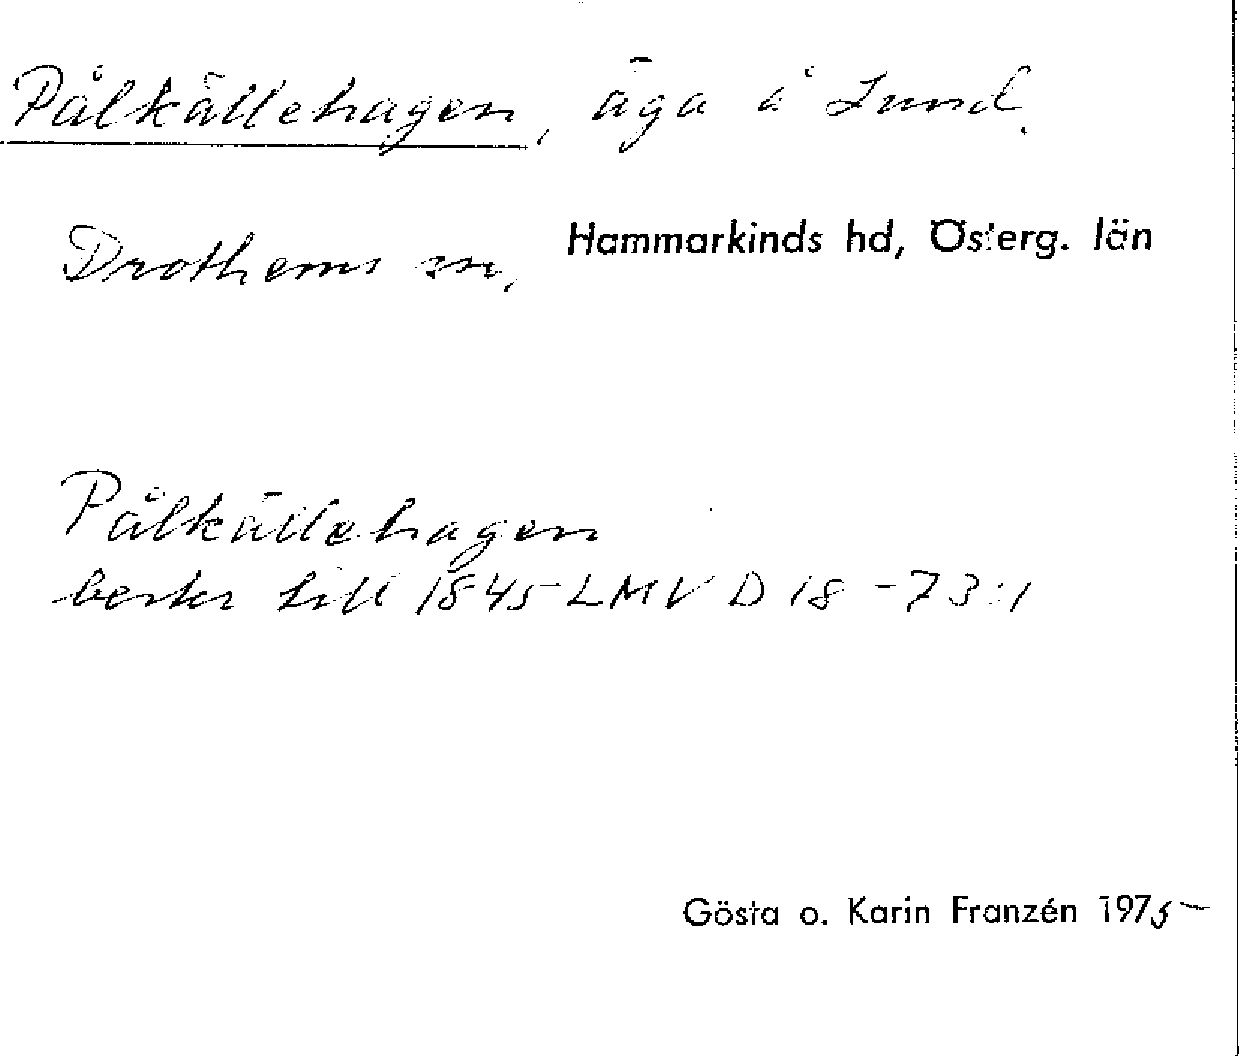 Pålkällehagen, äga å Lund.
Drothems sn, Hammarkinds hd, Österg. län
Pålkällehagen
beskr till 1845 LMV D 18 - 73:1
Gösta o. Karin Franzén 1975